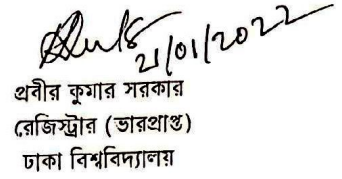 21/01/2022
প্রবীর কুমার সরকার
রেজিস্ট্রার (ভারপ্রাপ্ত)
ঢাকা বিশ্ববিদ্যালয়